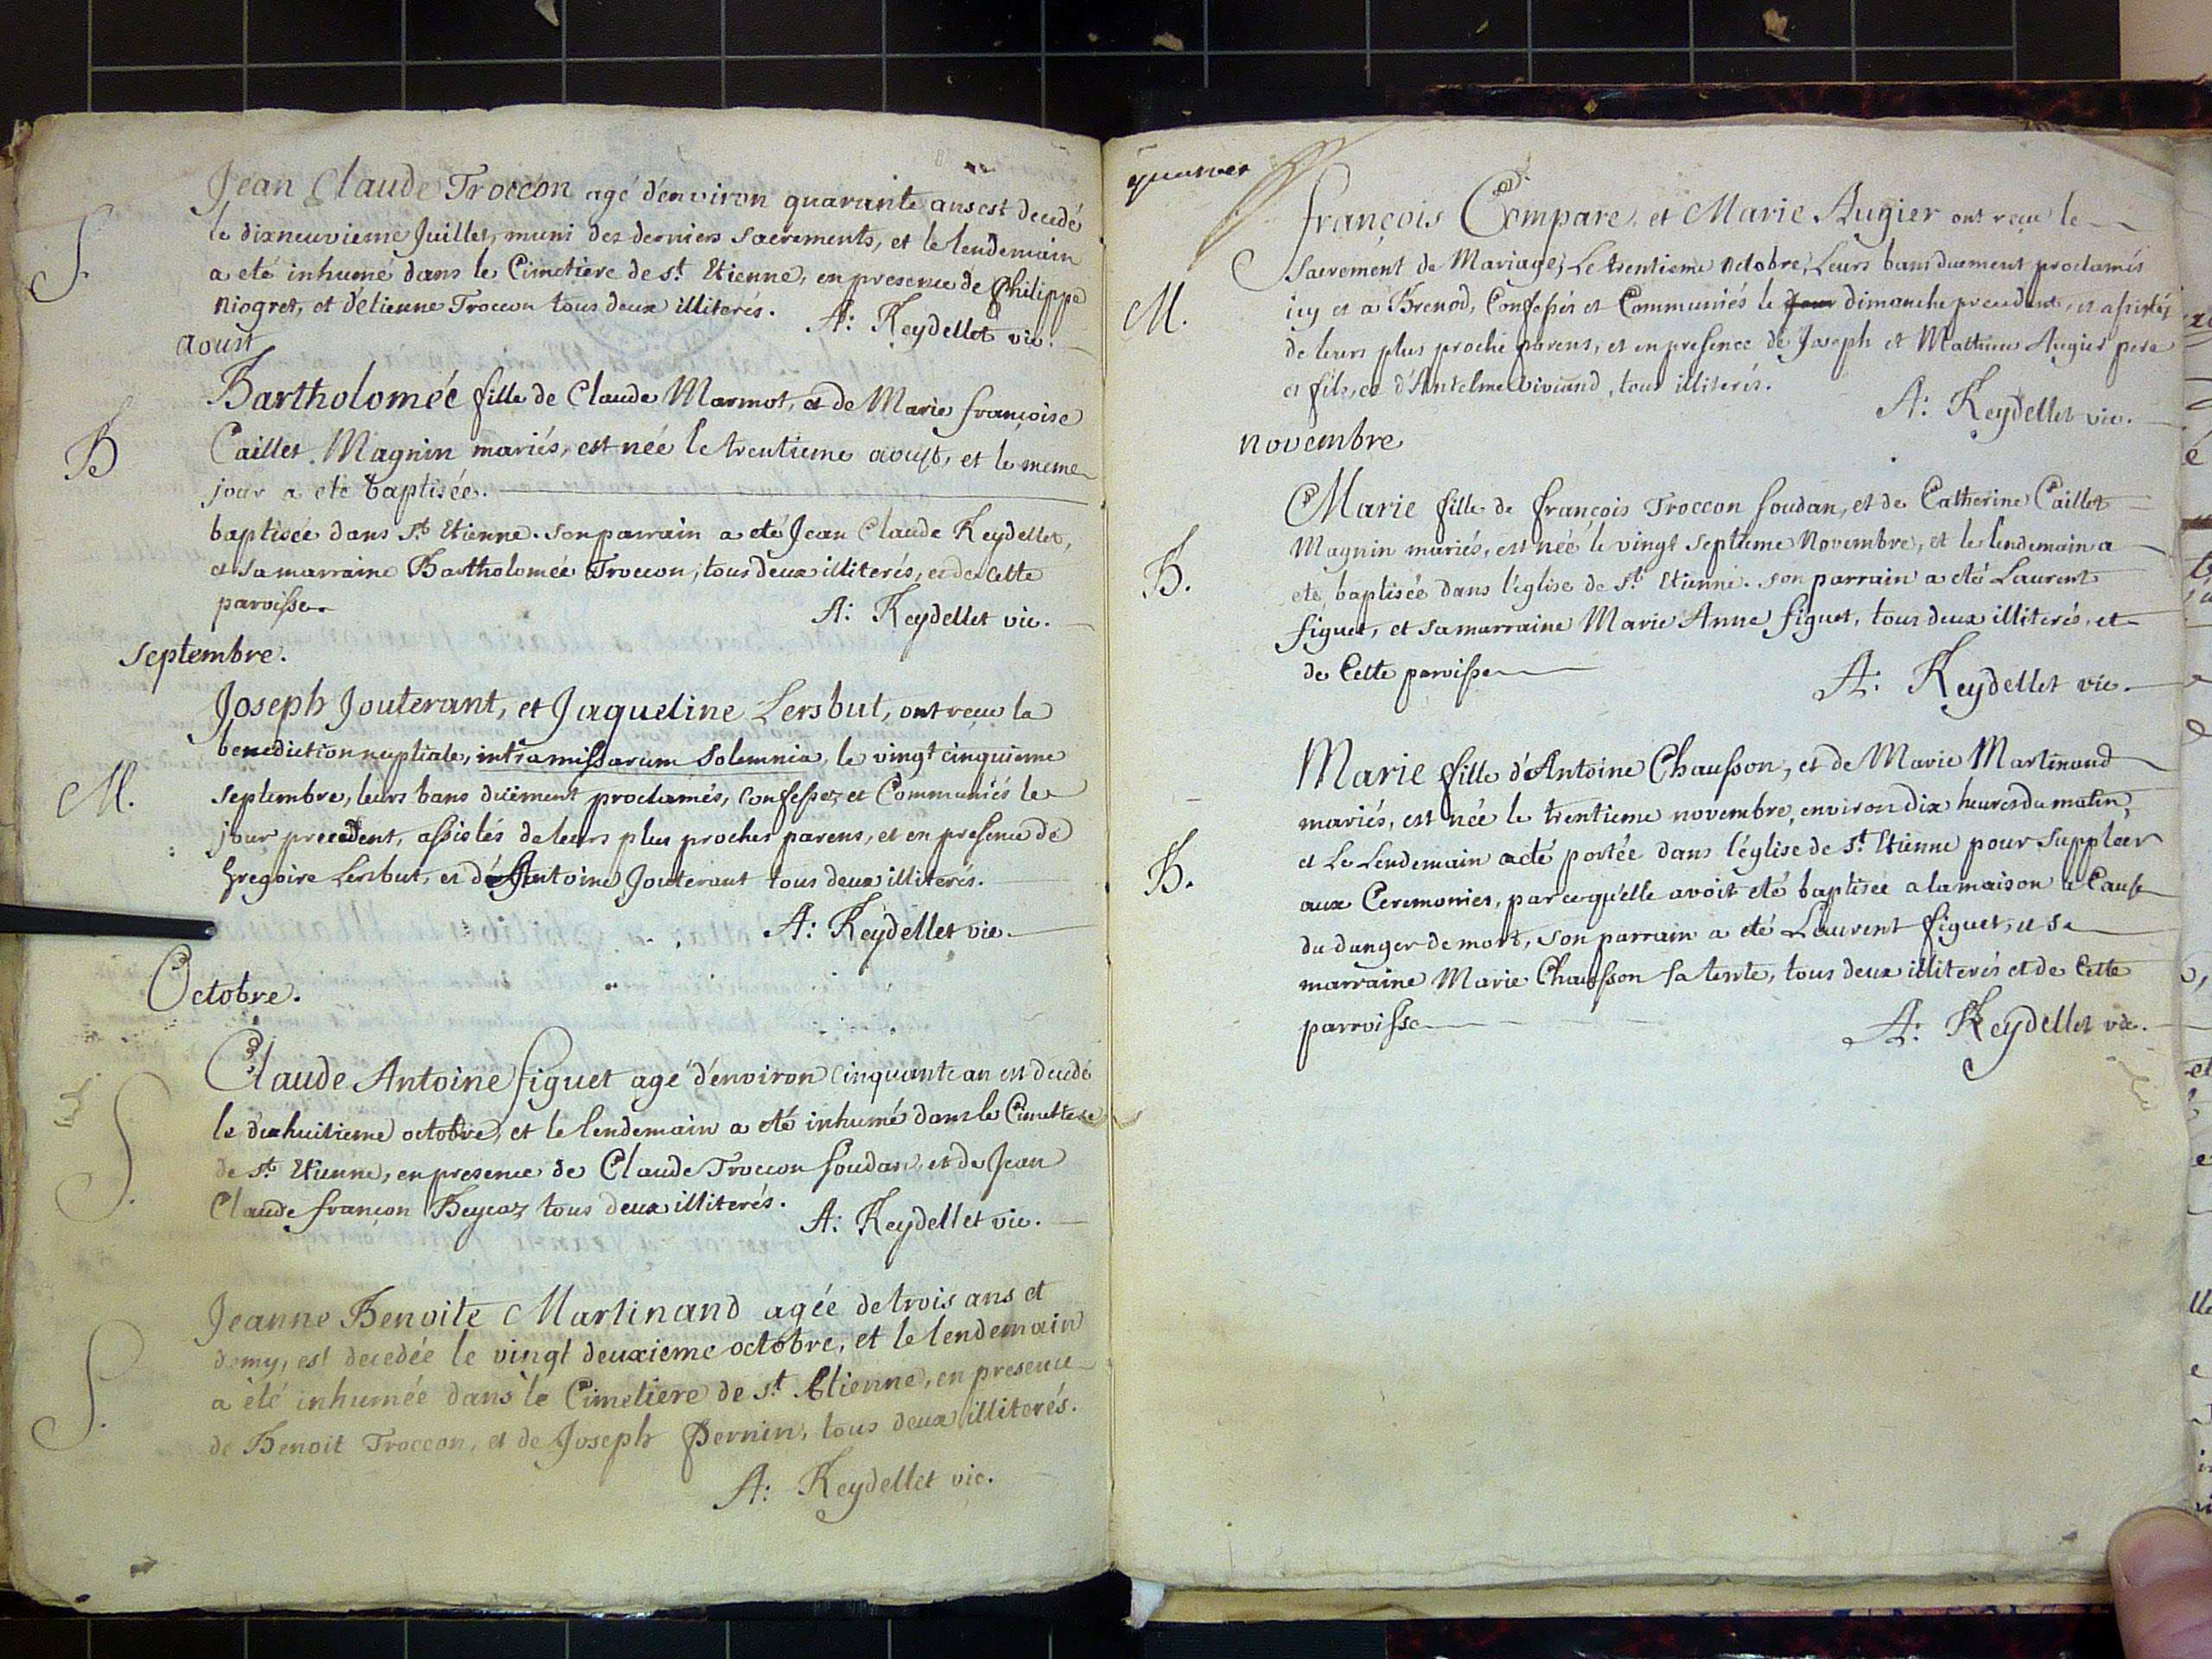 Jean Claude Troccon agé d'environ quarante ans est decedé
S.
le dixneuvieme Juillet, muni des derniers sacrements, et le lendemain
a eté inhumé dans le Cimetiere de st. Etienne, en presence de Philippe
Niogret, et d'etienne Troccon tous deux illiterés.
A: Reydellet vic.
aoust
Bartholomée fille de Claude Marmot, et de Marie françoise
B
Caillet Magnin mariés, est née le trentieme aoust, et le meme
jour a eté baptisée.
baptisée dans st. Etienne. son parrain a eté Jean Claude Reydellet,
et sa marraine Bartholomée Troccon, tous deux illiterés, et de cette
paroisse.
A: Reydellet vic.
Septembre.
Joseph Jouterant, et Jaqueline Lersbut, ont reçu la
benediction nuptiale, intra missarum solemnia, le vingt cinquieme
M.
septembre, leurs bans duëment proclamés, confessez et Communiés le
jour precedent, assistés de leurs plus proches parens, et en presence de
Gregoire Lersbut, et d'Antoine Jouterant tous deux illiterés.
A: Reydellet vic.
Octobre.
Claude Antoine figuet agé d'environ cinquante an est decedé
S.
le dixhuitieme octobre, et le lendemain a eté inhumé dans le Cimettere
de st. Etienne, en presence de Claude Troccon soudan, et de Jean
Claude françon Beycoz tous deux illiterés.
A: Reydellet vic.
Jeanne Benoite Martinand agée de trois ans et
demy, est decedée le vingt deuxieme octobre, et le lendemain
S.
a eté inhumée dans le Cimetiere de st. Etienne, en presence
de Benoit Troccon, et de Joseph Pernin, tous deux illiterés.
A: Reydellet vic.
françois Compare, et Marie Augier ont reçu le
Sacrement de Mariage, Le trentieme octobre, Leurs bans duement proclamés
M.
icy et a Brenod, Confessés et Communiés le jour dimanche precedent, et assistés
de leurs plus proche parens, et en presence de Joseph et Mathieu Augier pere
et fils, et d'Antelme Viviand, tous illiterés.
A: Reydellet vic.
novembre
Marie fille de françois Troccon soudan, et de Catherine Caillet
Magnin mariés, est née le vingt septieme Novembre, et le lendemain a
B.
eté baptisée dans l'église de st. Etienne. son parrain a eté Laurent
figuet, et sa marraine Marie Anne figuet, tous deux illiterés, et
de Cette paroisse
A: Reydellet vic.
Marie fille d'Antoine Chausson, et de Marie Martinand
mariés, est née le trentieme novembre, environ dix heures du matin,
B.
et Le Lendemain a eté portée dans l'église de st. Etienne pour suppléer
aux Ceremonies, parcequ'elle avoit eté baptisée a la maison a Cause
du danger de mort, son parrain a eté Laurent figuet, et sa
marraine Marie Chausson sa tente, tous deux illiterés et de Cette
parroisse
A: Reydellet vic.